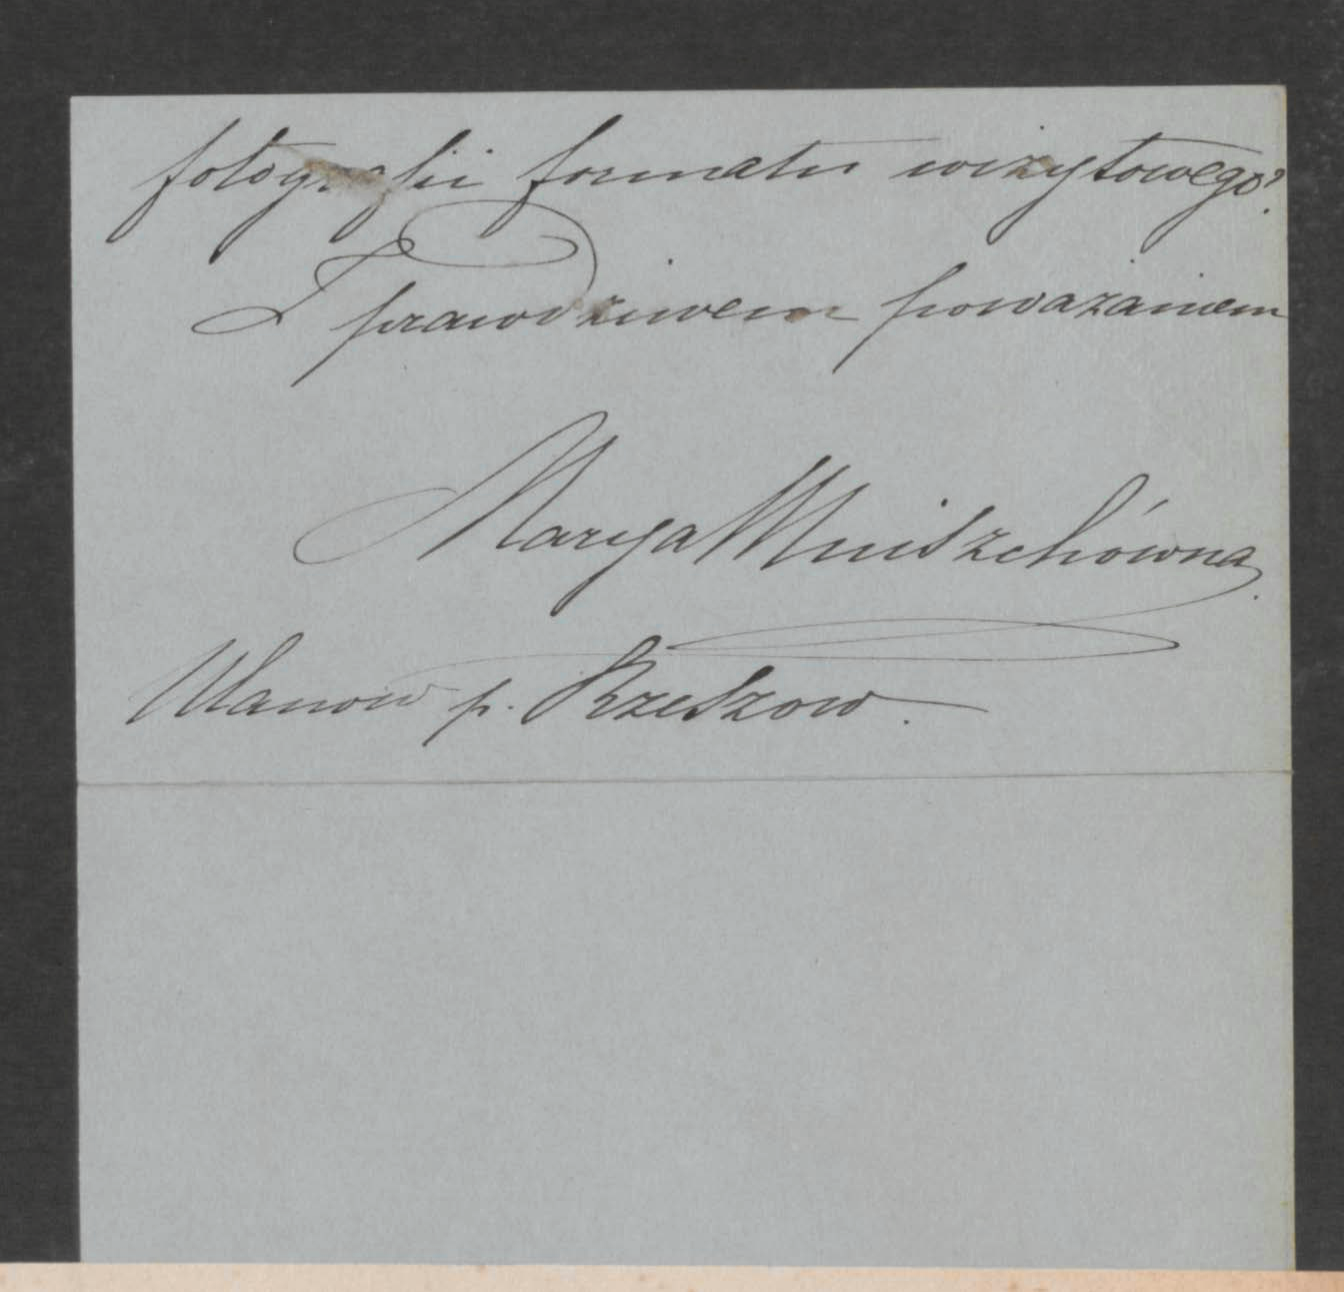 fotografii formatu wizytowego?
Z prawdziwem poważaniem
Marya Mniszchówna.
Ulanow p. Rzeszow.